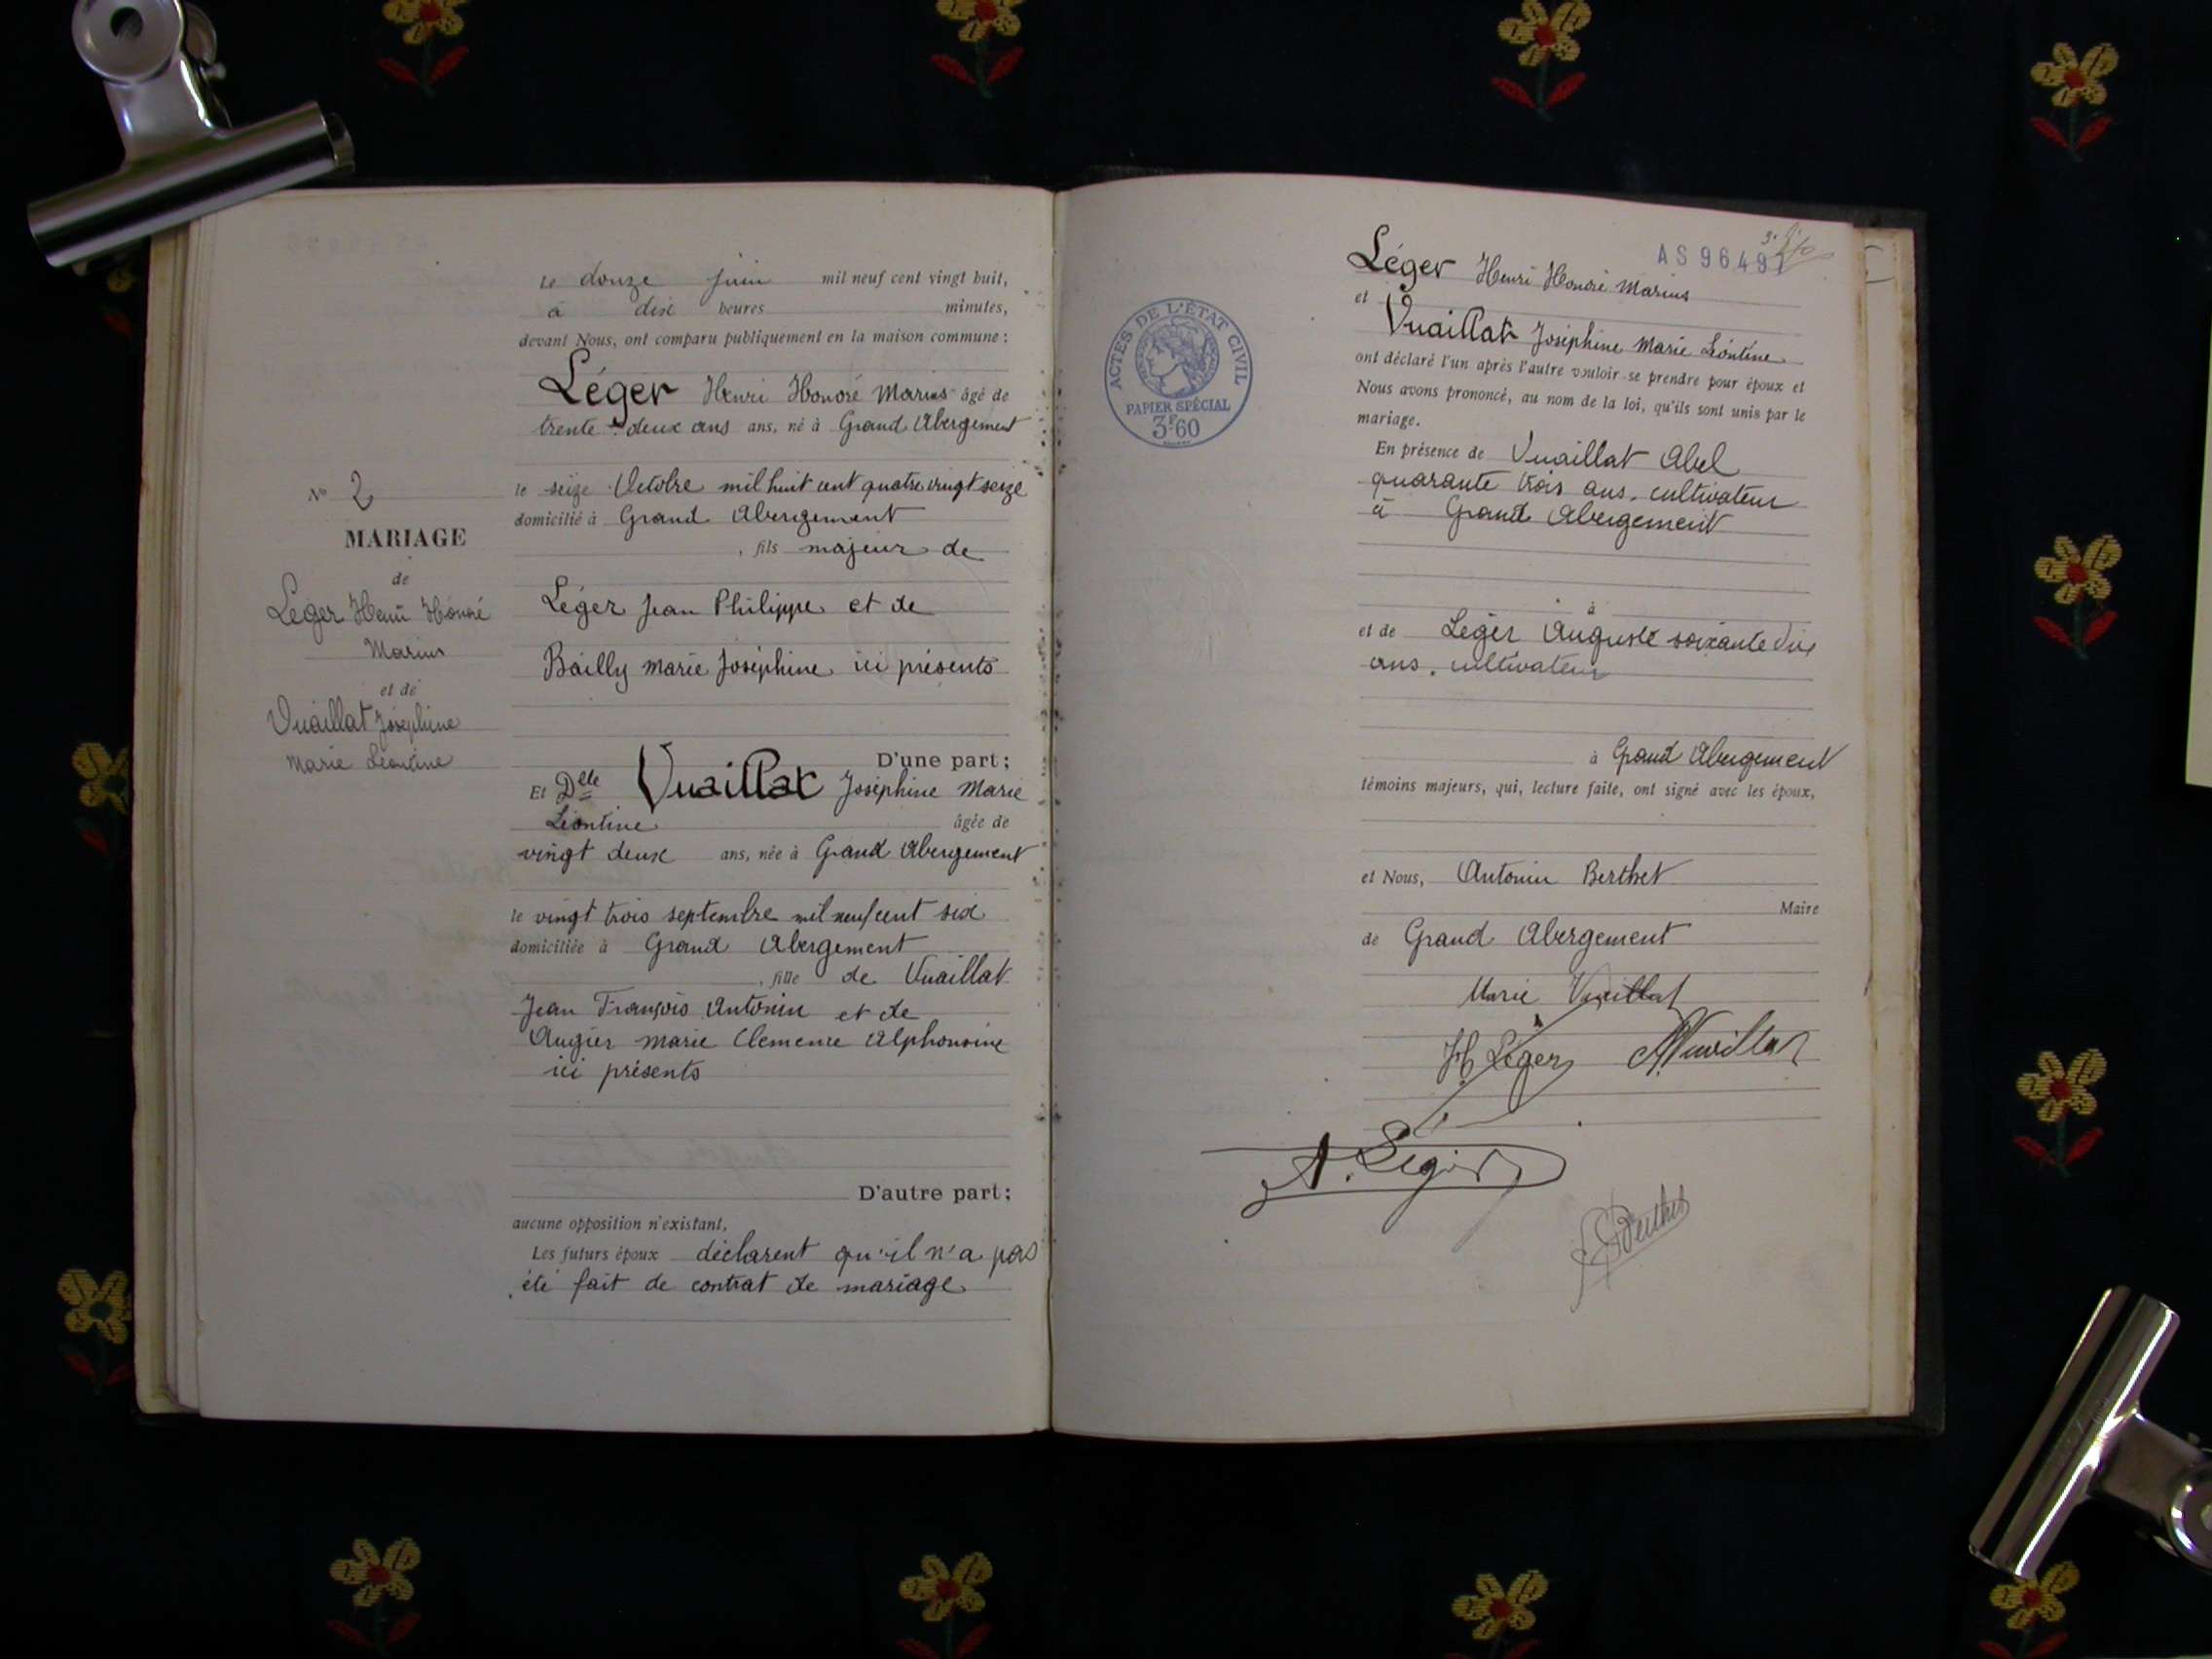 Le douze juin mil neuf cent vingt huit,
à dix heures minutes,
devant Nous, ont comparu publiquement en la maison commune :
Léger Henri Honoré Marius âgé de
trente-deux ans ans, né à Grand Abergement
le seize Octobre mil huit cent quatre vingt seize
domicilié à Grand Abergement
, fils majeur de
Léger Jean Philippe et de
Bailly Marie Joséphine ici présents
D'une part ;
Et Delle Vuaillat Joséphine Marie
Léontine âgée de
vingt deux ans, née à Grand Abergement
le vingt trois septembre mil neuf cent six
domiciliée à Grand Abergement
, fille de Vuaillat
Jean François Antonin et de
Augier Marie Clemence Alphonsine
ici présents
D'autre part ;
aucune opposition n'existant,
Les futurs époux déclarent qu'il n'a pas
été fait de contrat de mariage
No 2
MARIAGE
de
Léger Henri Honoré
Marius
et de
Vuaillat Joséphine
Marie Léontine
AS 9649
Léger Henri Honoré Marius
et
Vuaillat Joséphine Marie Léontine
ont déclaré l'un après l'autre vouloir se prendre pour époux et
Nous avons prononcé, au nom de la loi, qu'ils sont unis par le
mariage.
En présence de Vuaillat Abel
quarante trois ans, cultivateur
à Grand Abergement
à
et de Léger Auguste soixante dix
ans, cultivateur
à Grand Abergement
témoins majeurs, qui, lecture faite, ont signé avec les époux,
et Nous, Antonin Berthet
Maire
de Grand Abergement
Marie Vuaillat
H Léger AVuaillat
A. Léger
Berthet
ACTES DE L'ÉTAT CIVIL
PAPIER SPÉCIAL
3F60